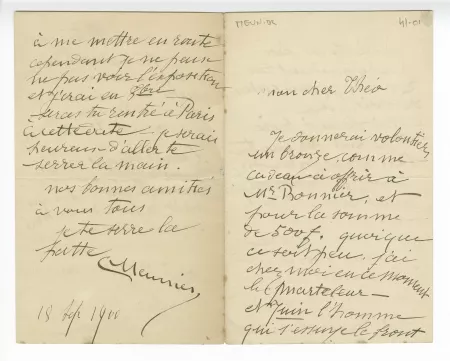 mon cher Théo
Je donnerai volontiers
un bronze, comme
cadeau à offrir à
Mr Bonnier, et
pour la somme
de 500f. quoique
ce soit peu. j'ai
chez moi en ce moment
le Marteleur —
et Juin l'homme
qui s'essuye le front
à me mettre en route
cependant je ne puis
ne pas voir l'exposition
et j'irai en
seras tu rentré à Paris
à cette date je serais
heureux d'aller te
serrer la main.
nos bonnes amitiés
à vous tous
je te serre la
patte
CMeunier
18 Sep 1900